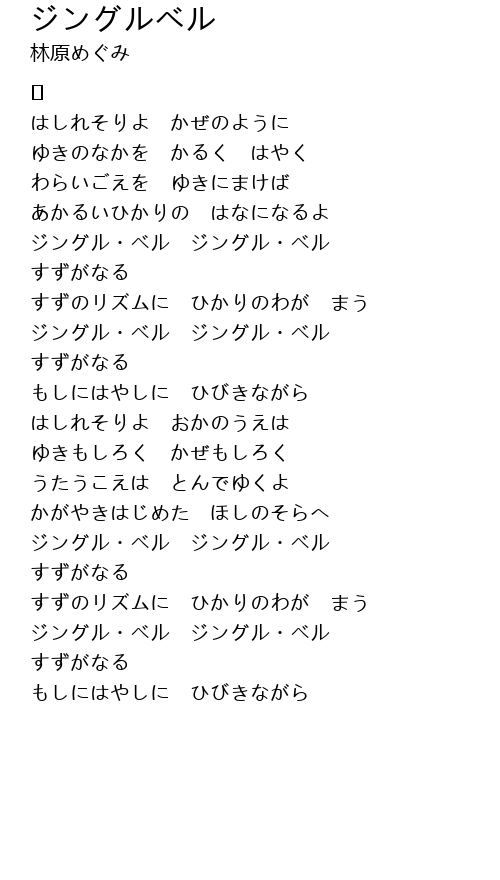 ジングルベル
林原めぐみ
はしれそりよ　かぜのように
ゆきのなかを　かるく　はやく
わらいごえを　ゆきにまけば
あかるいひかりの　はなになるよ
ジングル・ベル　ジングル・ベル
すずがなる
すずのリズムに　ひかりのわが　まう
ジングル・ベル　ジングル・ベル
すずがなる
もしにはやしに　ひびきながら
はしれそりよ　おかのうえは
ゆきもしろく　かぜもしろく
うたうこえは　とんでゆくよ
かがやきはじめた　ほしのそらへ
ジングル・ベル　ジングル・ベル
すずがなる
すずのリズムに　ひかりのわが　まう
ジングル・ベル　ジングル・ベル
すずがなる
もしにはやしに　ひびきながら